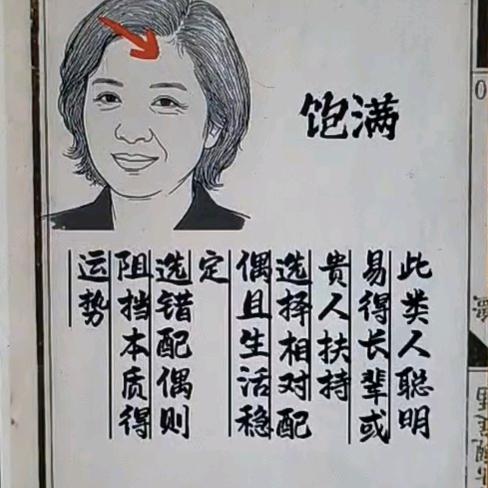 饱满
此类人聪明
易得长辈或
贵人扶持
选择相对配
偶且生活稳
定
选错配偶则
阻挡本质得
运势
0